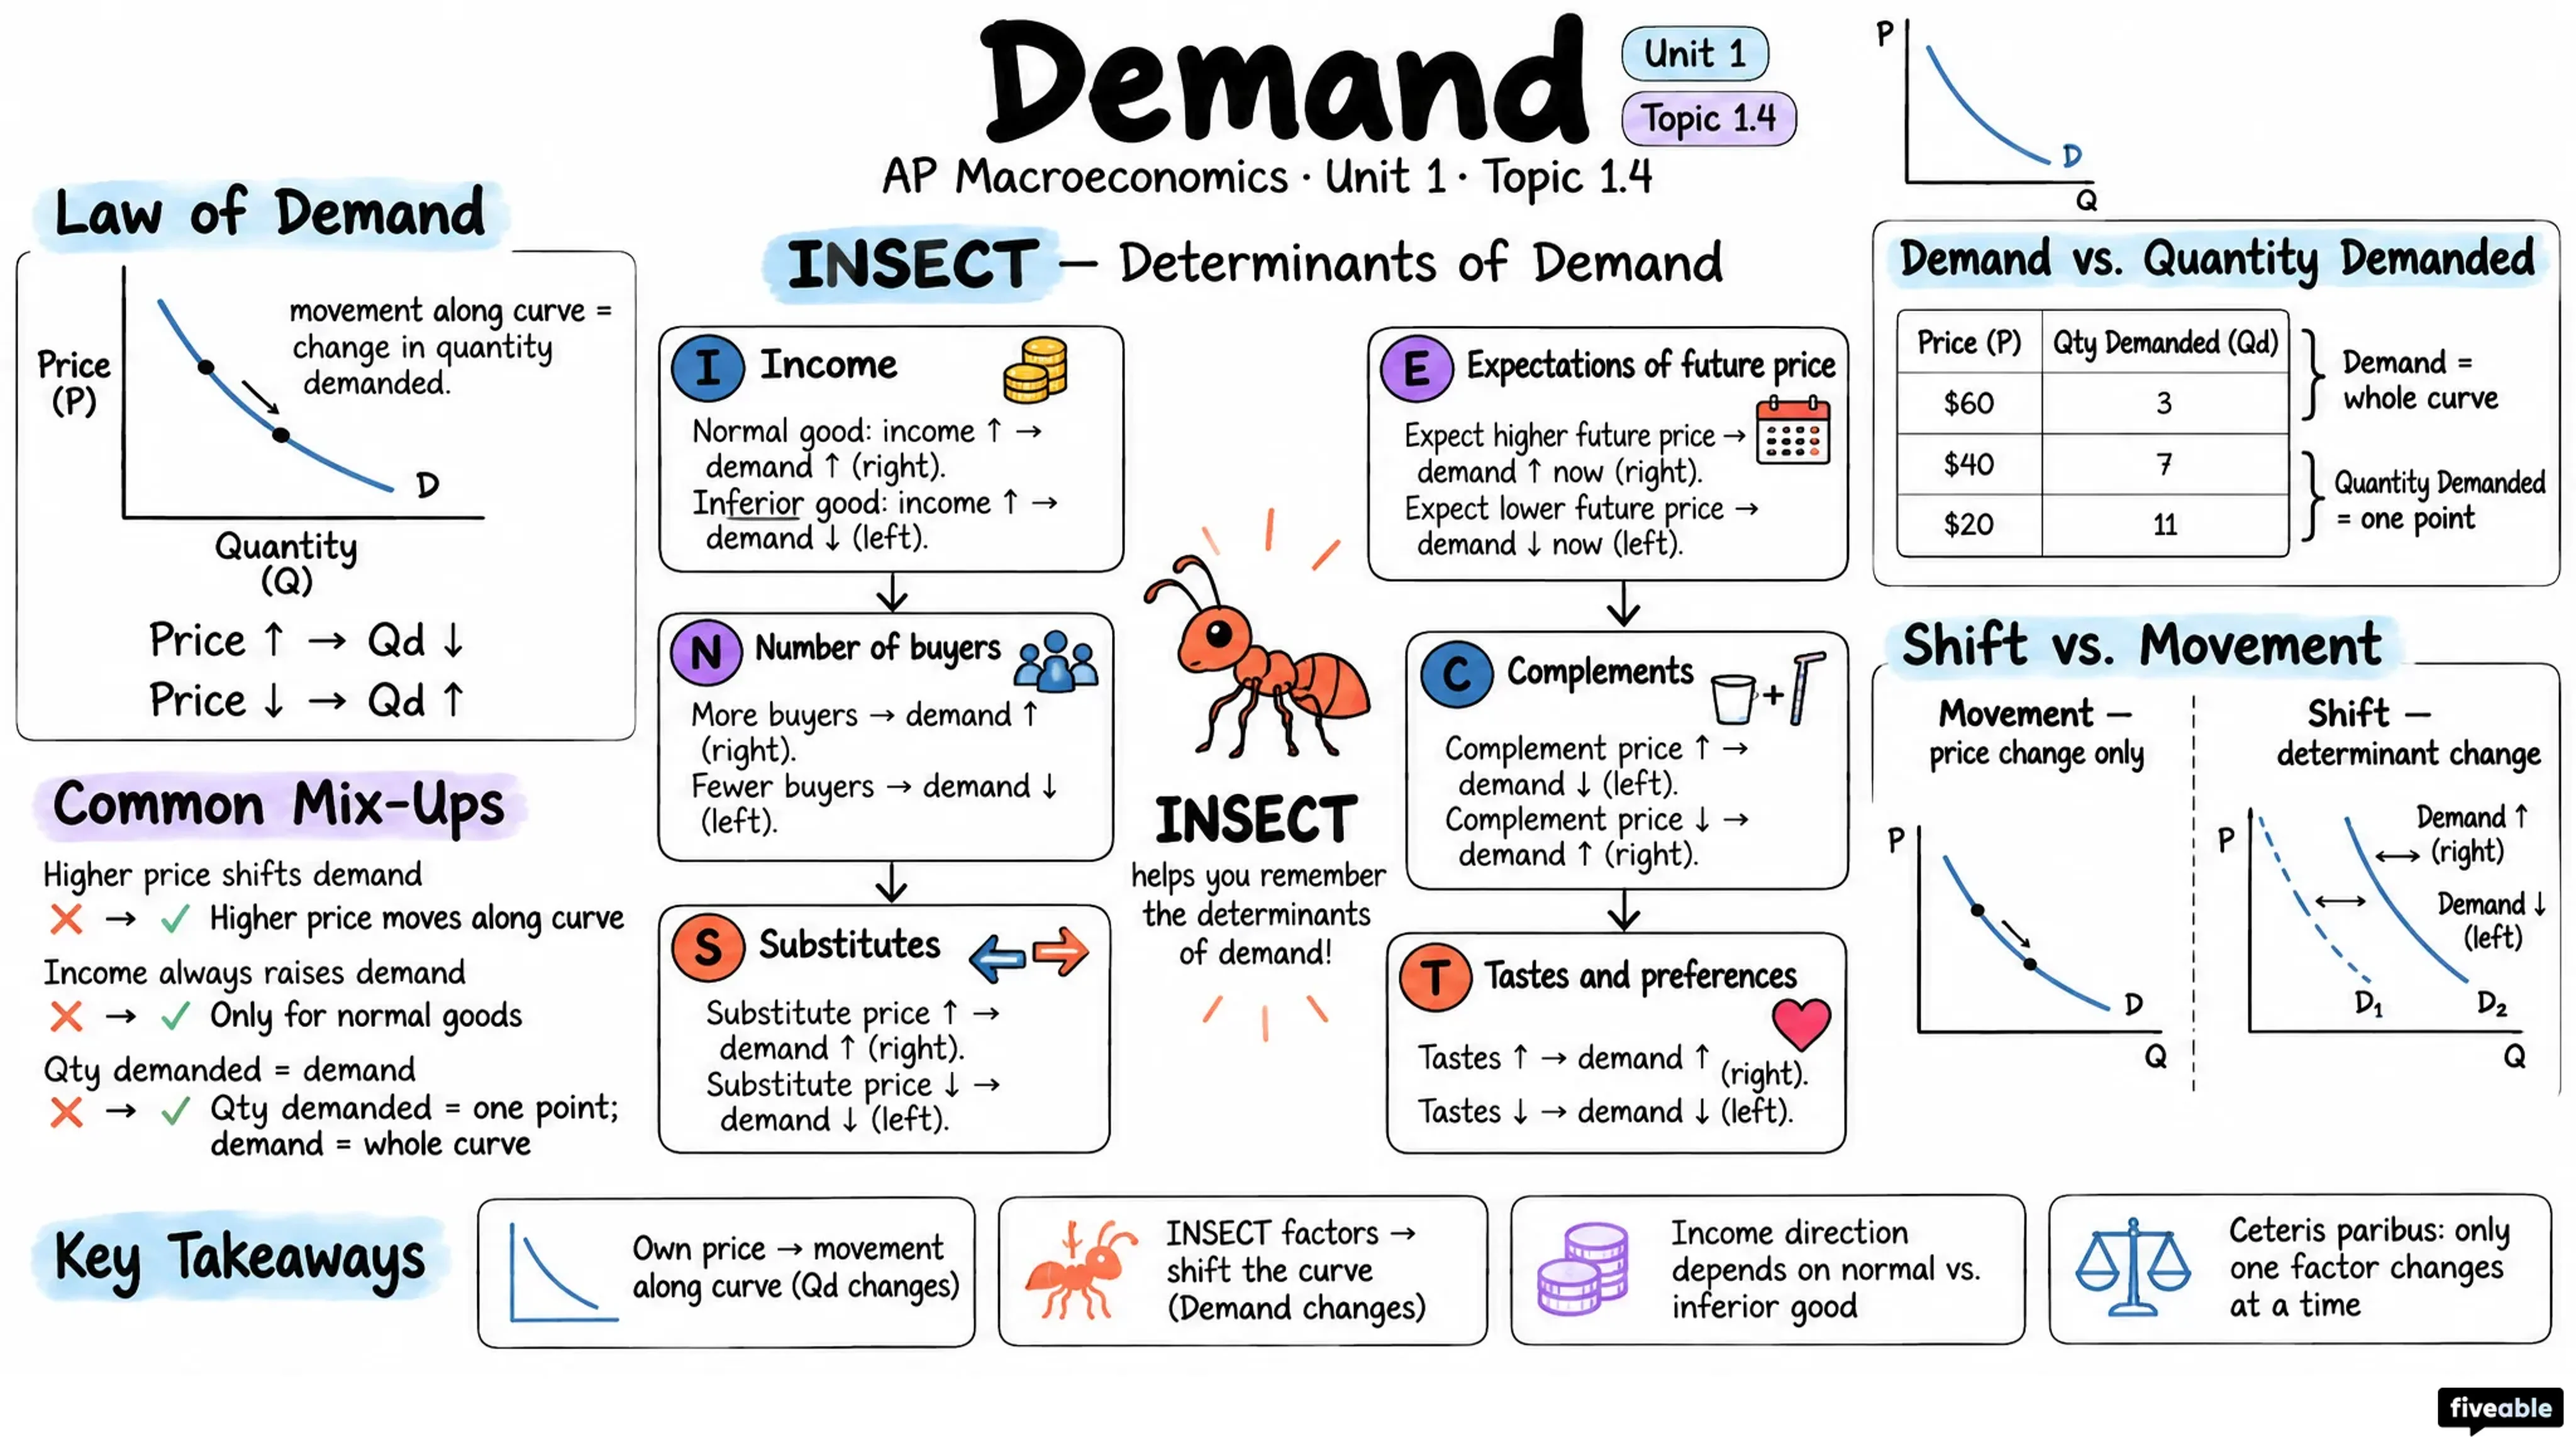 Demand
Unit 1
Topic 1.4
AP Macroeconomics · Unit 1 · Topic 1.4
P
D
Q
Law of Demand
movement along curve =
change in quantity
demanded.
Price
(P)
D
Quantity
(Q)
Price ↑ → Qd ↓
Price ↓ → Qd ↑
Common Mix-Ups
Higher price shifts demand
❌ → ✓ Higher price moves along curve
Income always raises demand
❌ → ✓ Only for normal goods
Qty demanded = demand
❌ → ✓ Qty demanded = one point;
demand = whole curve
INSECT – Determinants of Demand
I Income
Normal good: income ↑ →
demand ↑ (right).
Inferior good: income ↑ →
demand ↓ (left).
N Number of buyers
More buyers → demand ↑
(right).
Fewer buyers → demand ↓
(left).
S Substitutes
Substitute price ↑ →
demand ↑ (right).
Substitute price ↓ →
demand ↓ (left).
INSECT
helps you remember
the determinants
of demand!
E Expectations of future price
Expect higher future price →
demand ↑ now (right).
Expect lower future price →
demand ↓ now (left).
C Complements
+
Complement price ↑ →
demand ↓ (left).
Complement price ↓ →
demand ↑ (right).
T Tastes and preferences
Tastes ↑ → demand ↑ (right).
Tastes ↓ → demand ↓ (left).
Demand vs. Quantity Demanded
Price (P) Qty Demanded (Qd)
$60 3
$40 7
$20 11
Demand =
whole curve
Quantity Demanded
= one point
Shift vs. Movement
Movement –
price change only
P
D
Q
Shift –
determinant change
P
Demand ↑
(right)
Demand ↓
(left)
D₁
D₂
Q
Key Takeaways
Own price → movement
along curve (Qd changes)
INSECT factors →
shift the curve
(Demand changes)
Income direction
depends on normal vs.
inferior good
Ceteris paribus: only
one factor changes
at a time
fiveable